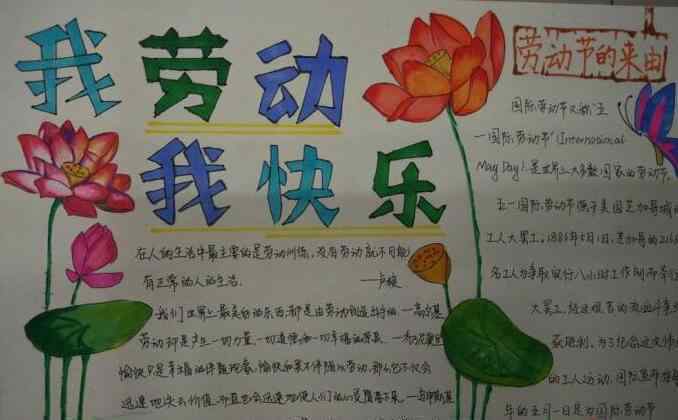 我劳动
我快乐
在人的生活中最主要的是劳动训练,没有劳动就不可能
有正常的人的生活。 ——卢梭
我们世界上最美好的东西都是由劳动创造出来的 —高尔基
劳动却是产生一切力量、一切道德和一切幸福的
愉快只是幸福的伴随现象,愉快如果不伴随以劳动,那么它不仅会
迅速地失去价值,而且也会迅速地使人们的心灵堕落下来。
劳动节的来由
国际劳动节又称"五
一国际劳动节"(International
May Day),是世界上大多数国家的劳动节。
五一国际劳动节源于美国芝加哥城的
工人大罢工。1886年5月1日,芝加哥的216
名工人为争取实行八小时工作制而举行
大罢工,经过艰苦的流血斗争
获胜利。为了纪念这次伟
的工人运动,国际
年的五月一日是为国际劳动节